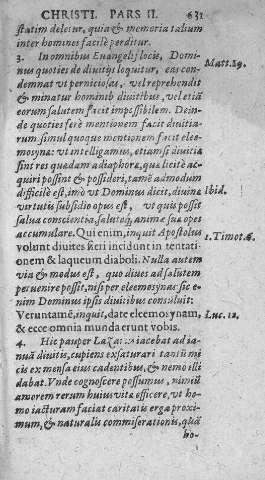 CHRISTI. PARS II. 631
statim deletur, quia & memoria talium
inter homines facile perditur.
3. In omnibus Euangelij locis, Domi-
nus quoties de diuitijs loquitur, eas con-
demnat vt perniciosas, vel reprehendit
& minatur hominib diuitibus, vel etiã
eorum salutem facit impossibilem. Dein-
de quoties ferè mentionem facit diuitia-
rum simul quoque mentionem facit elee-
mosynæ: vt intelligamus, etiamsi diuitiæ
sint res quædam adiaphoræ, quæ licitè ac-
quiri possint & possideri, tamẽ admodum
difficile est, imò vt Dominus dicit, diuinæ
virtutis subsidio opus est, vt quis possit
salua conscientia, saluteq́; animæ suæ opes
accumulare. Qui enim, inquit Apostolus
volunt diuites fieri incidunt in tentati-
onem & laqueum diaboli. Nulla autem
via & modus est, quo diues ad salutem
peruenire possit, nisi per eleemosynas: sic e-
nim Dominus ipsis diuitibus consuluit:
Veruntamẽ, inquit, date eleemosynam,
& ecce omnia munda erunt vobis.
4. Hic pauper Lazarus iacebat ad ia-
nuã diuitis, cupiens exsaturari tantũ mi-
cis ex mensa eius cadentibus, & nemo illi
dabat. Vnde cognoscere possumus, nimiũ
amorem rerum huius vitæ efficere, vt ho-
mo iacturam faciat caritatis erga proxi-
mum, & naturalis commiserationis, quã
ho-
Matt. 19.
Ibid.
1. Timot. 6.
Luc. 12.